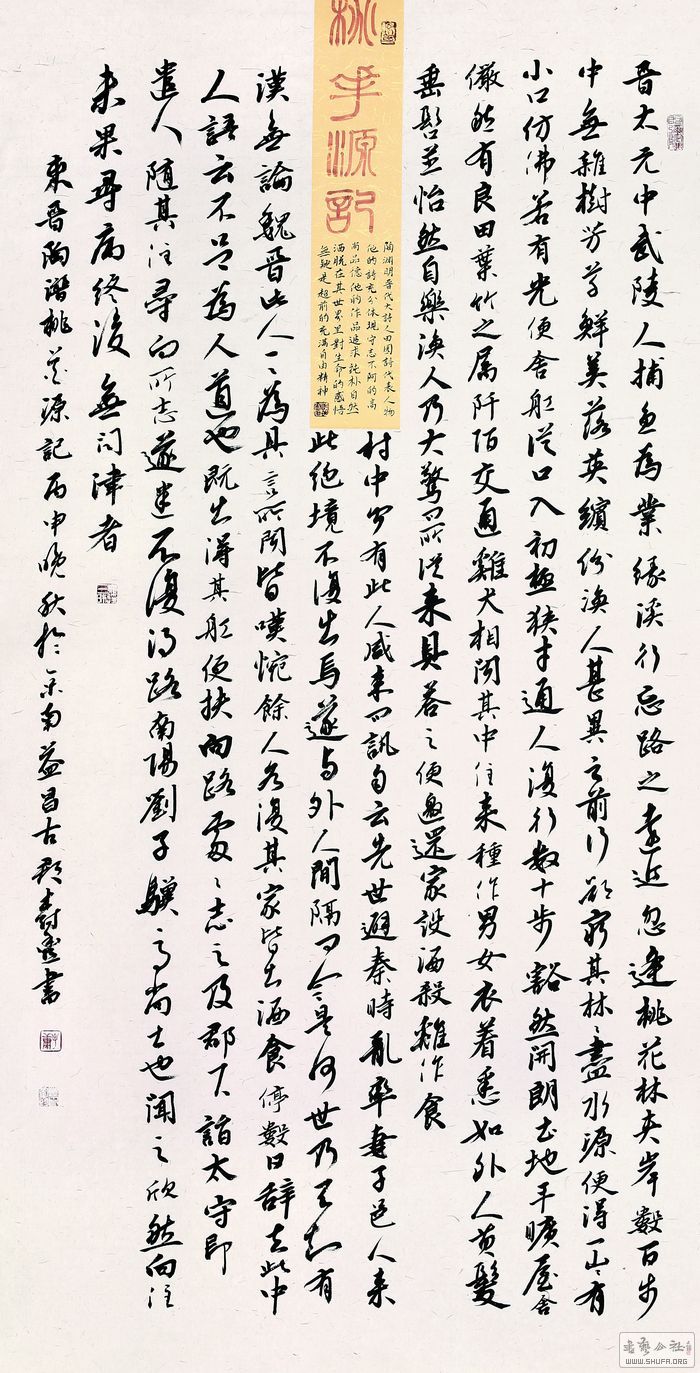 桃花源記
陶淵明晋代大詩人田園詩代表人物
他的詩充分体現守志不阿的高
尚品德他的作品追求純朴自然
洒脱在其世界里對生命的感悟
無疑是超前的充满自由精神
晋太元中武陵人捕鱼為業缘溪行忘路之遠近忽逢桃花林夹岸數百步
中無雜樹芳草鮮美落英繽纷渔人甚異之前行欲窮其林林盡水源便得一山山有
小口仿佛若有光便舍船從口入初極狹才通人復行數十步豁然開朗土地平曠屋舍
儼然有良田葉竹之属阡陌交通雞犬相闻其中往来種作男女衣着悉如外人黄髮
垂髫並怡然自樂渔人乃大驚问所從来具答之便邀還家設酒殺雞作食
村中闻有此人咸来问訊自云先世避秦時亂率妻子邑人来
此绝境不復出焉遂与外人間隔问今是何世乃不知有
漢無論魏晋此人一一為具言所闻皆嘆惋餘人各復其家皆出酒食停數日辞去此中
人語云不足為人道也既出得其船便扶向路處處志之及郡下詣太守即
遣人随其往尋向所志遂迷不復得路南陽劉子驥高尚士也聞之欣然向往
未果尋病终後無问津者
東晋陶潜桃花源記丙申晚秋於京南益昌古郡書
WWW.SHUFA.ORG